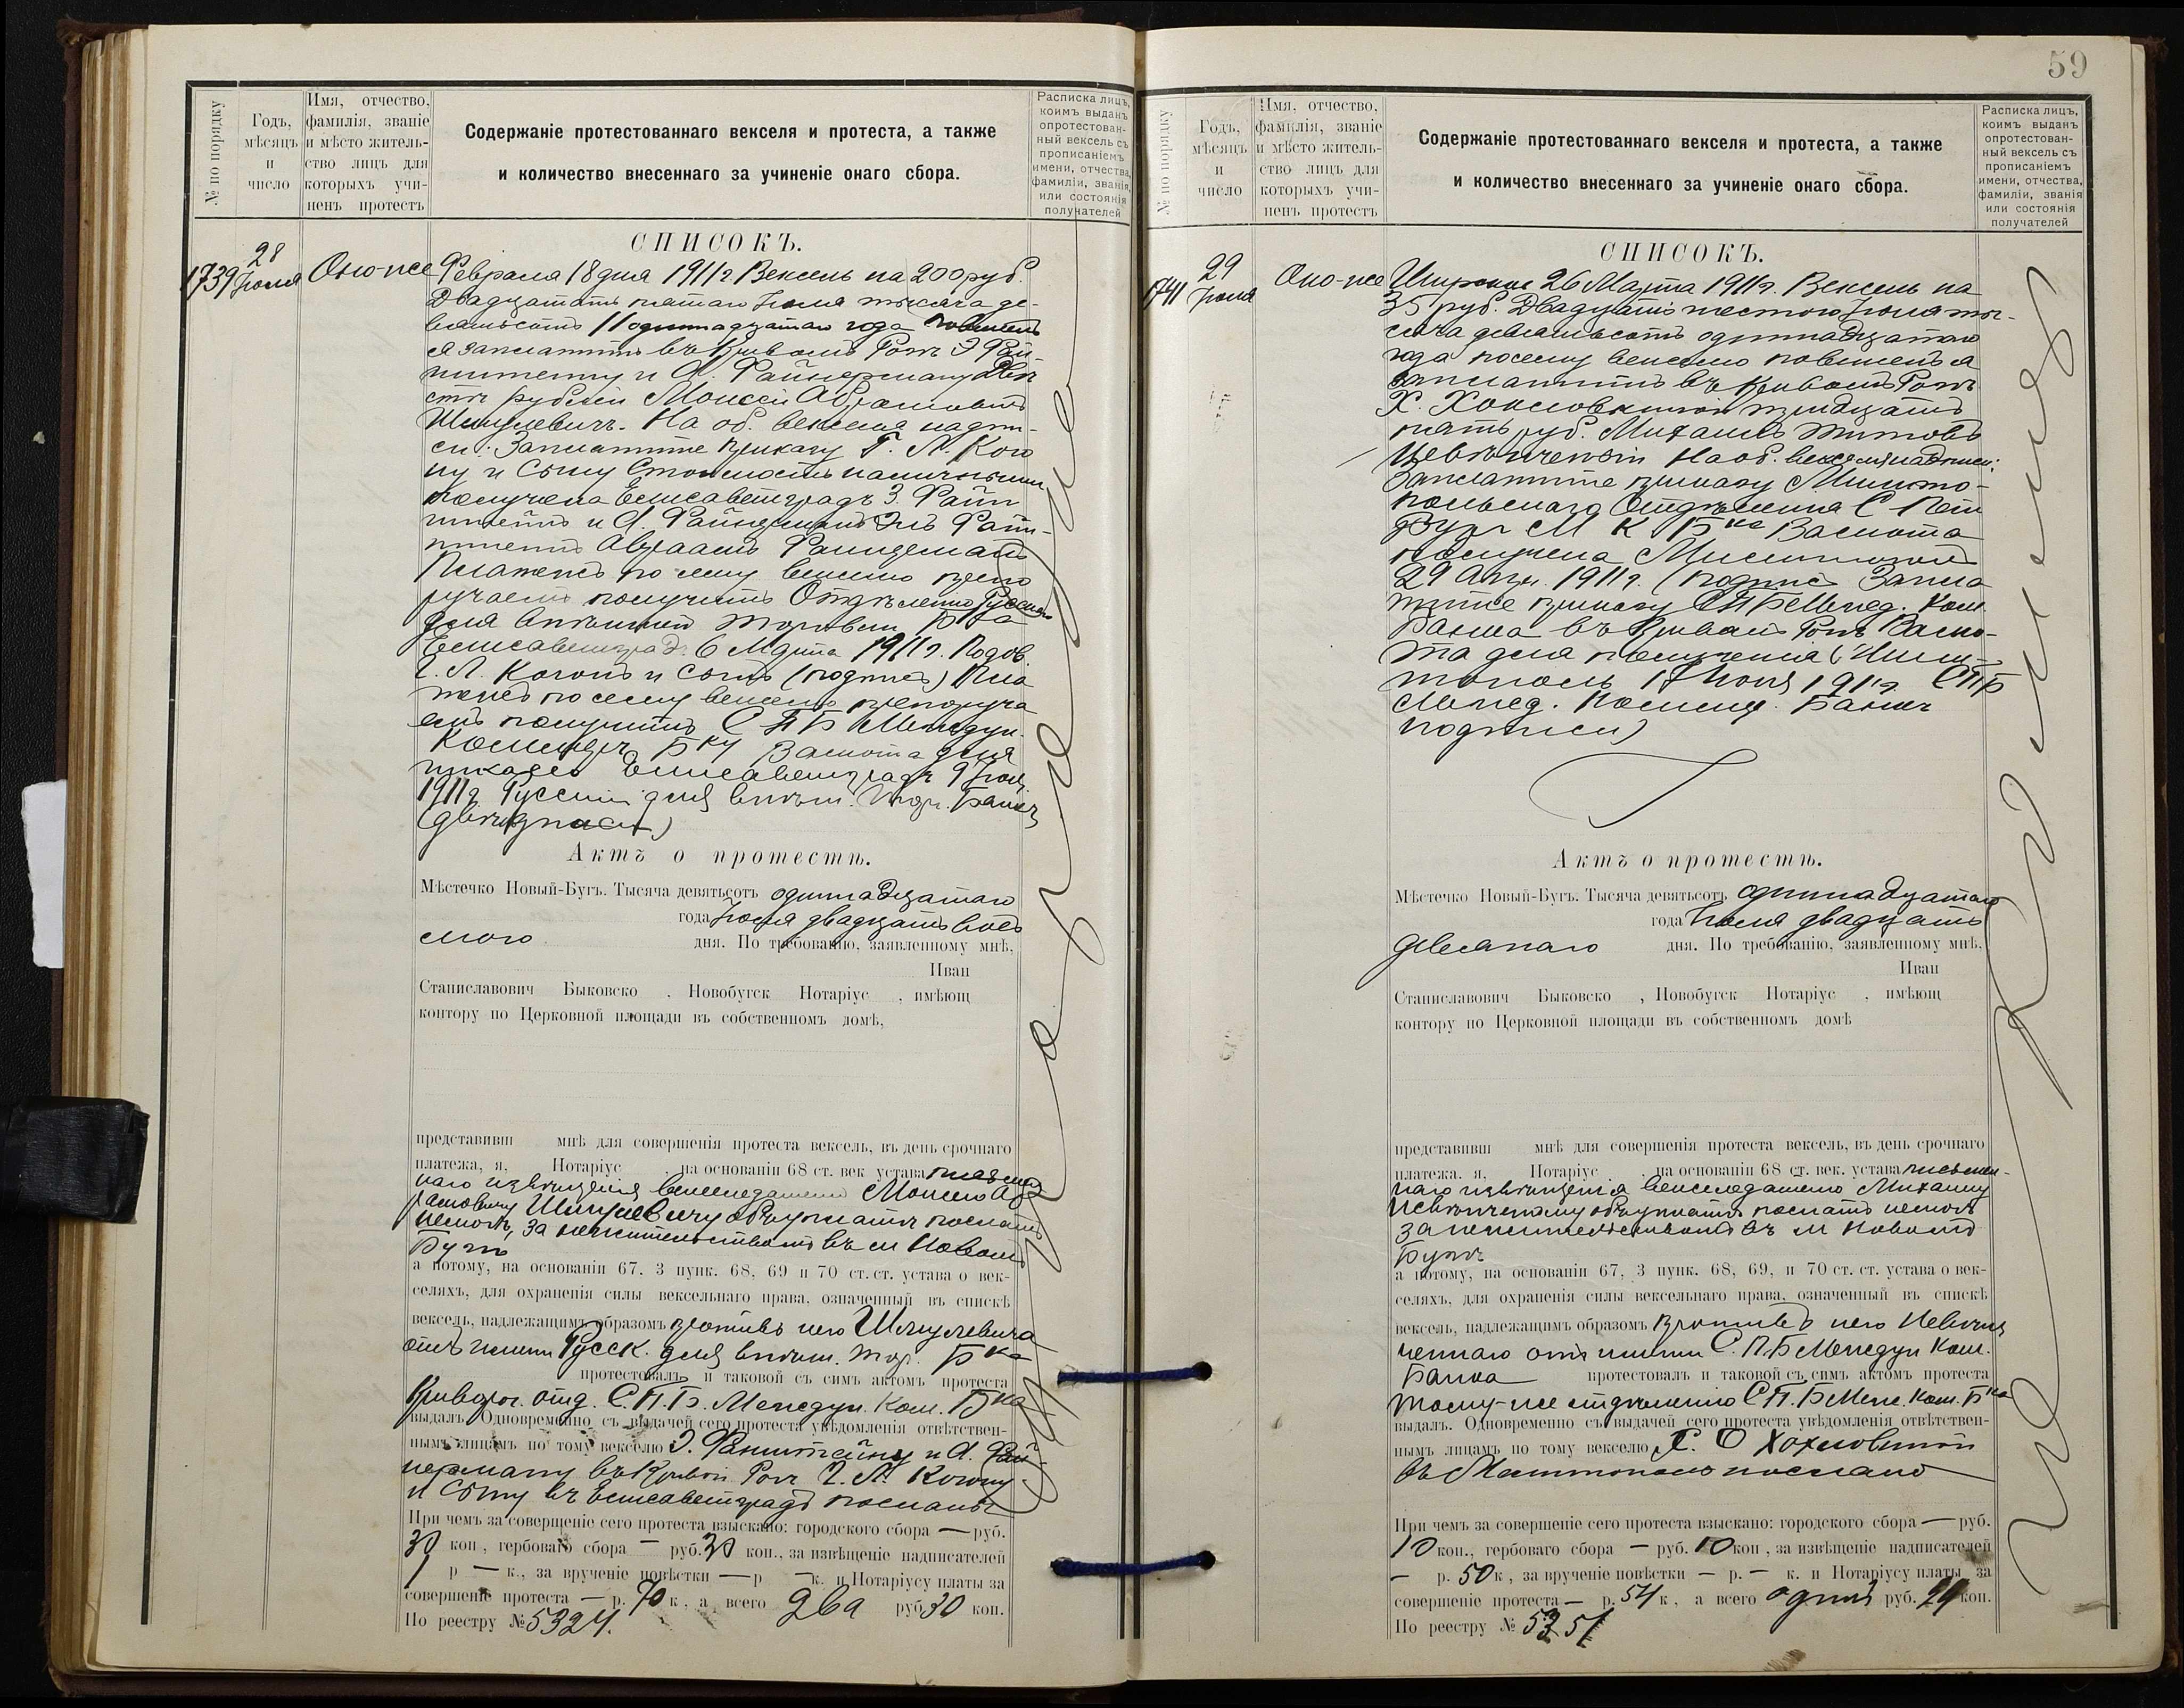 59
№ по порядку
Годъ, мѣсяцъ и число
Имя, отчество, фамилія, званіе и мѣсто жительство лицъ для которыхъ учиненъ протестъ
Содержаніе протестованнаго векселя и протеста, а также
и количество внесеннаго за учиненіе онаго сбора.
Расписка лицъ, коимъ выданъ опротестованный вексель съ прописаніемъ имени, отчества, фамиліи, званія, или состоянія получателей
СПИСОКЪ.
1739
28 Іюля
Оно-же
Февраля 18 дня 1911 г Вексель на 200 руб.
Двадцать пятаго Іюля тысяча де-
вятьсотъ 11 одиннадцатаго года повиненъ
я заплатить въ Кривомъ Рогѣ Э Фан-
штейну и А. Файнерману Двѣ
сти рублей Моисей Абрамовичъ
Шмулевичъ. На об. векселя надпи-
си: Заплатите приказу Г. Л. Кого
ну и Сыну Стоимость наличными
получена Елисаветградъ Э Файн
штейнъ и А.
Платежъ по сему векселю препо
ручаемъ получить Отдѣленію Русскаго
для внѣшней торговли Б-ка
Елисаветград. 6 Марта 1911 г.
Л. Когонъ и Сынъ (подпись) Пла
тежъ по сему векселю препоруча
емъ получить С П Б Междун.
Коммерч. Б ку Валюта для
Елисаветградъ 9 Іюл.
1911 г. Русскій для внѣшн. Торг. Банкъ
(двѣ подписи)
Актъ о протестѣ.
Мѣстечко Новый-Бугъ. Тысяча девятьсотъ одиннадцатаго
года Іюля двадцать вось
мого дня. По требованію, заявленному мнѣ,
Иван
Станиславович Быковско . Новобугск Нотаріус , имѣющ
контору по Церковной площади въ собственномъ домѣ,
представивш мнѣ для совершенія протеста вексель, въ день срочнаго
платежа, я, Нотаріус , на основаніи 68 ст. век устава письмен
наго извѣщенія векселедателю Моисею Аб
рамовичу Шмулевичу объ уплатѣ послать
не могъ, за нежительствомъ въ м Новомъ
Бугѣ
а потому, на основаніи 67. 3 пунк. 68, 69 и 70 ст. ст. устава о век-
селяхъ, для охраненія силы вексельнаго права, означенный въ спискѣ
вексель, надлежащимъ образомъ противъ него Шмулевича
отъ имени Русск. для внѣшн. Тор. Б ка
протестовалъ и таковой съ симъ актомъ протеста
Криворог. отд. С. П. Б. Междун. Ком. Б ка
выдалъ. Одновременно съ выдачей сего протеста увѣдомленія отвѣтствен-
нымъ лицамъ по тому векселю Э. Файнштейну и А. Фай-
нерману въ Кривой Рогъ Л. Когону
и Сыну въ Елисаветградъ посланы
При чемъ за совершеніе сего протеста взыскано: городского сбора — руб.
30 коп., гербоваго сбора — руб. 30 коп., за извѣщеніе надписателей
1 р — к., за врученіе повѣстки — р — к. и Нотаріусу платы за
совершеніе протеста — р. 70 к, а всего два руб 30 коп.
По реестру № 5324.
№ по порядку
Годъ, мѣсяцъ и число
Имя, отчество, фамилія, званіе и мѣсто жительство лицъ для которыхъ учиненъ протестъ
Содержаніе протестованнаго векселя и протеста, а также
и количество внесеннаго за учиненіе онаго сбора.
Расписка лицъ, коимъ выданъ опротестованный вексель съ прописаніемъ имени, отчества, фамиліи, званія или состоянія получателей
СПИСОКЪ.
1741
29 Іюля
Оно-же
Широкое 26 Марта 1911 г. Вексель на
35 руб. Двадцать шестого Іюля ты-
сяча девятьсотъ одиннадцатаго
года по сему векселю повиненъ я
заплатить въ Кривомъ Рогѣ
Х. тридцать
пять руб. Михаилъ Титовъ
На об. векселя надписи:
Заплатите приказу Мелито-
польскаго Отдѣленія С Пет
Бург М К Б ка Валюта
получена Мелитополь
29 Апр. 1911 г. (подпись Запла
тите приказу СПБ Межд. Ком.
Банка въ Кривомъ Рогѣ Валю-
та для полученія (Мели-
тополь 17 Іюня 1911 г. СПБ
Межд. Коммер. Банкъ
подписи)
Актъ о протестѣ.
Мѣстечко Новый-Бугъ. Тысяча девятьсотъ одиннадцатаго
года Іюля двадцать
девятаго дня. По требованію, заявленному мнѣ,
Иван
Станиславович Быковско , Новобугск Нотаріус , имѣющ
контору по Церковной площади въ собственномъ домѣ
представивш мнѣ для совершенія протеста вексель, въ день срочнаго
платежа. я, Нотаріус , на основаніи 68 ст. век. устава письмен-
наго извѣщенія векселедателю Михаилу
объ уплатѣ послать не могъ
за нежительствомъ въ м Новомъ
Бугѣ
а потому, на основаніи 67, 3 пунк. 68, 69, и 70 ст. ст. устава о век-
селяхъ, для охраненія силы вексельнаго права, означенный въ спискѣ
вексель, надлежащимъ образомъ противъ него
отъ имени С. П. Б Междун Ком.
Банка протестовалъ и таковой съ симъ актомъ протеста
тому-же отдѣленію С П. Б Меж. Ком. Б ка
выдалъ. Одновременно съ выдачей сего протеста увѣдомленія отвѣтствен-
нымъ лицамъ по тому векселю
въ Мелитополь послано
При чемъ за совершеніе сего протеста взыскано: городского сбора — руб.
10 коп., гербоваго сбора — руб. 10 коп, за извѣщеніе надписателей
— р. 50 к, за врученіе повѣстки — р. — к. и Нотаріусу платы за
совершеніе протеста — р. 54 к, а всего одинъ руб. 24 коп.
По реестру № 5351